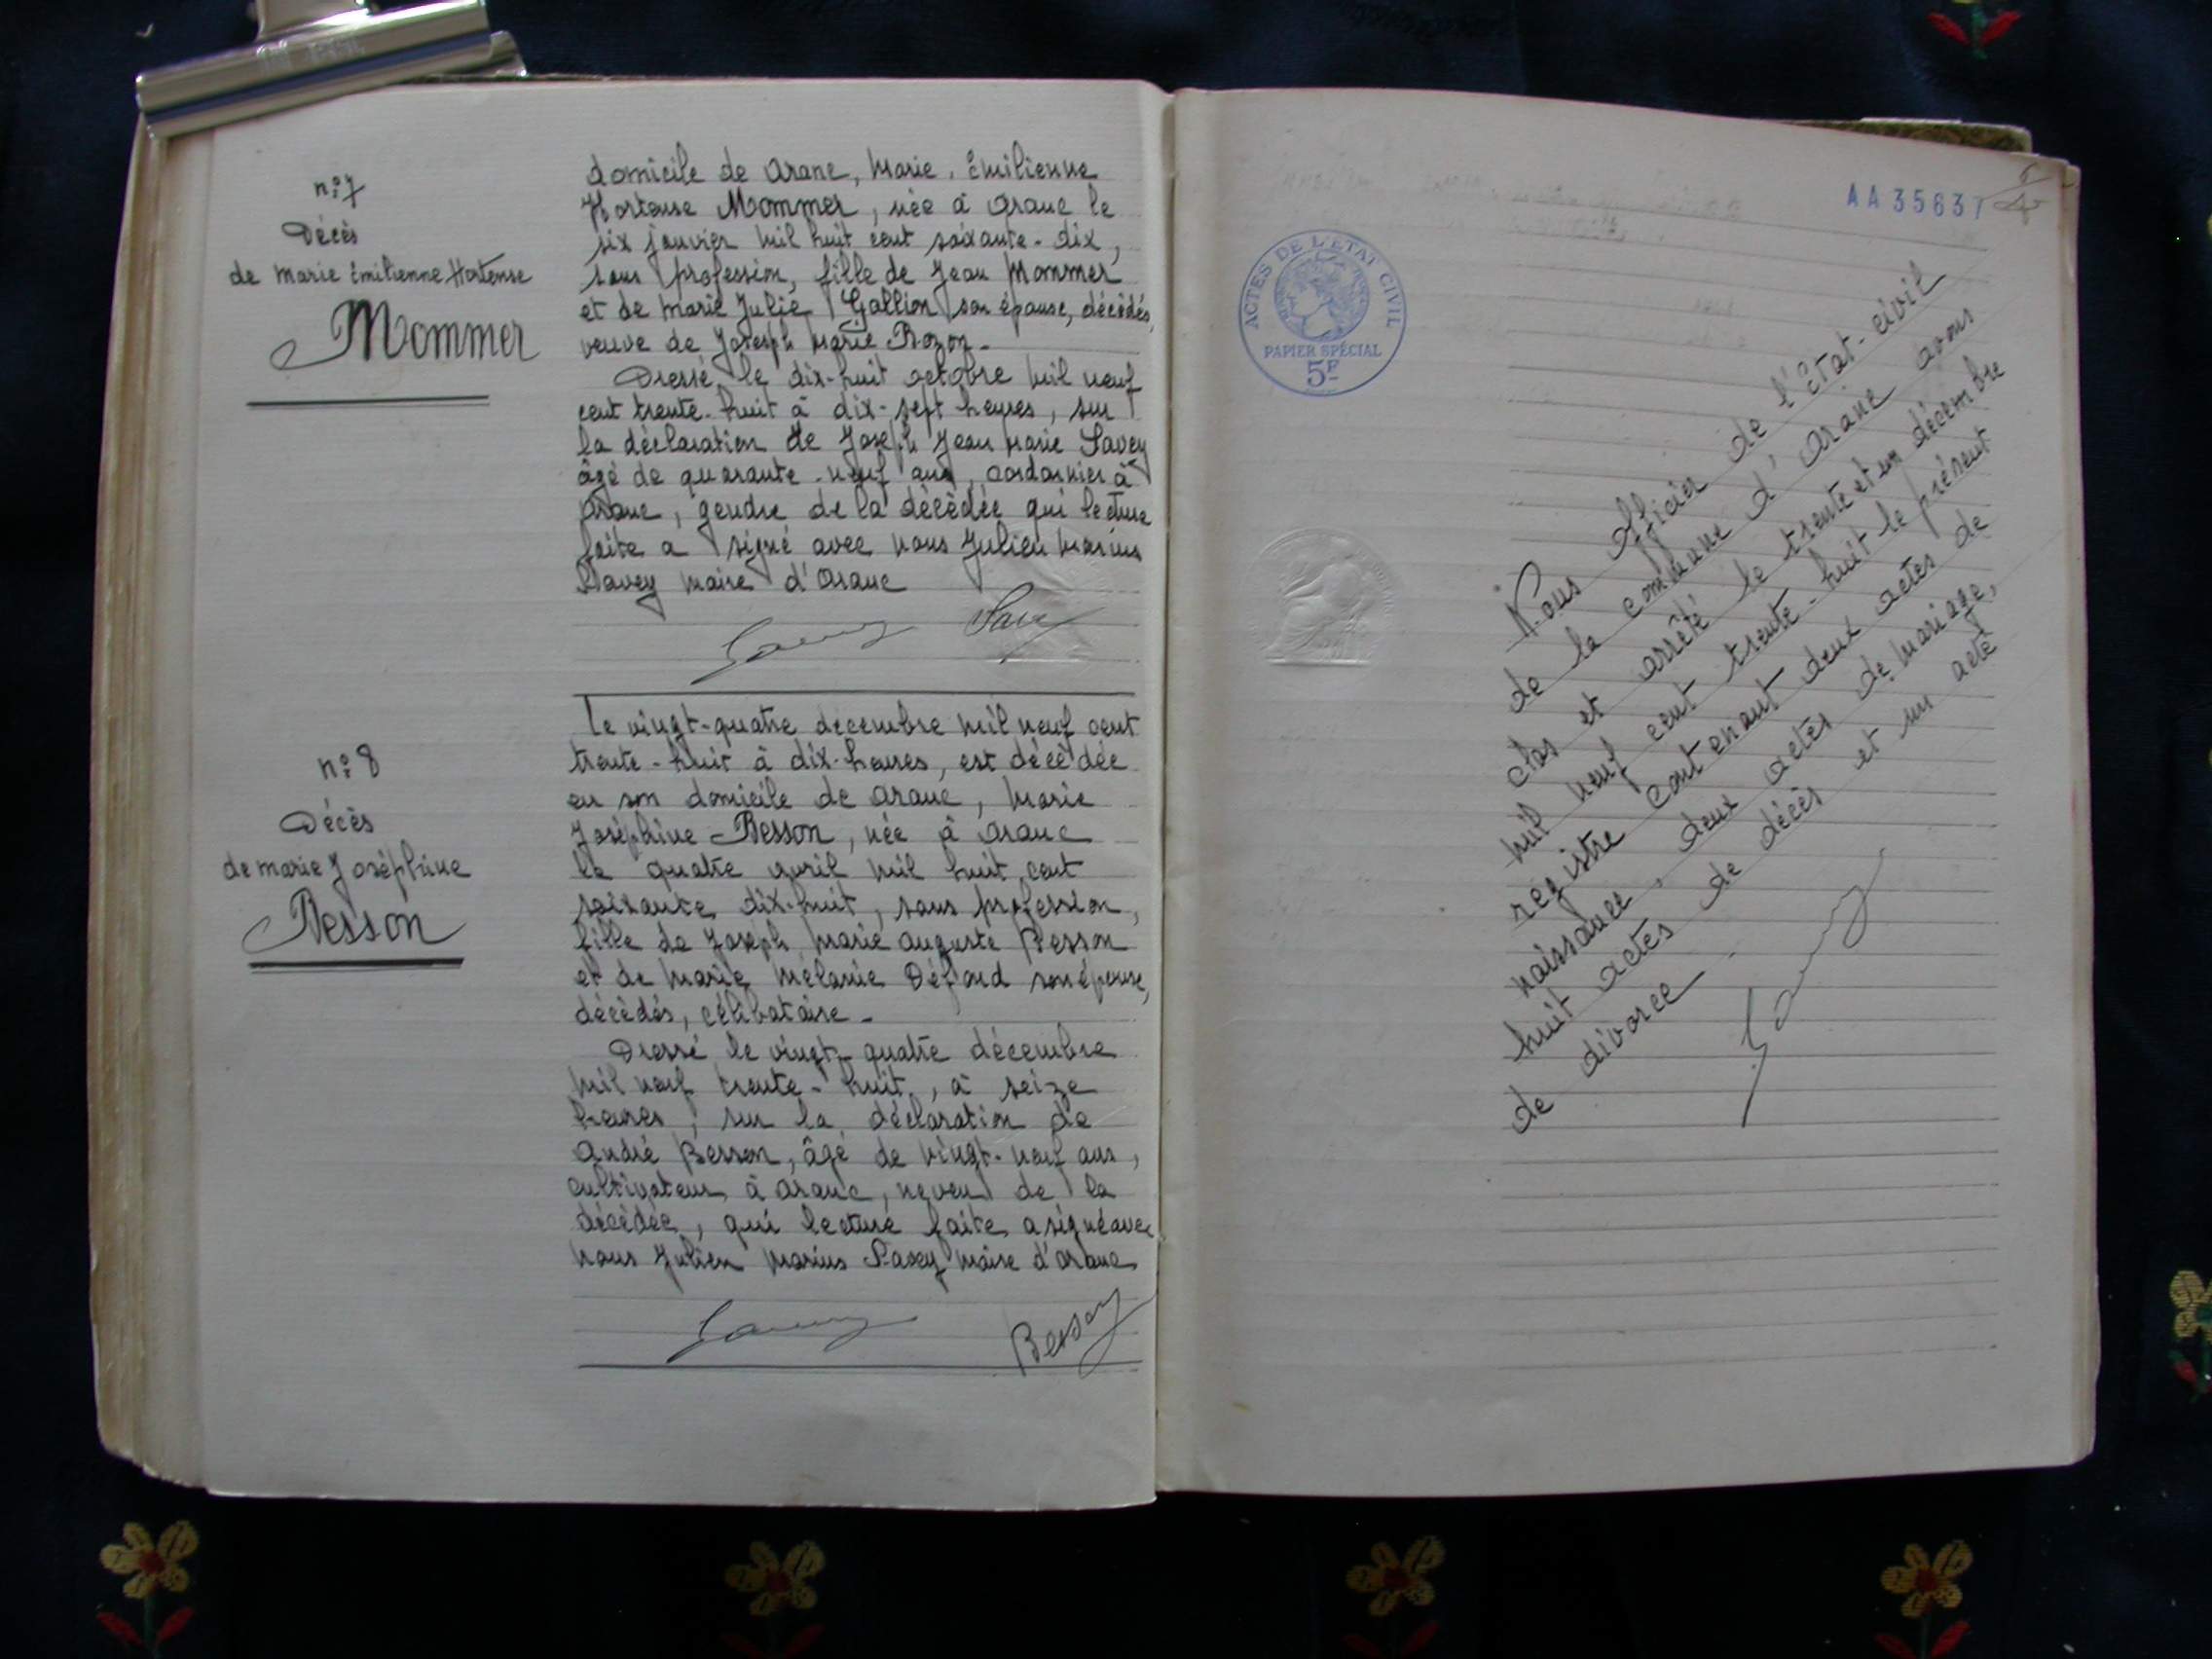 n° 7
Décès
de Marie Émilienne Hortense
Mommer
domicile de Aranc, Marie, Émilienne
Hortense Mommer, née à Aranc le
six janvier mil huit cent soixante-dix,
sans profession, fille de Jean Mommer
et de Marie Julie Gallion son épouse, décédés,
veuve de Joseph Marie Bozon.
Dressé le dix-huit octobre mil neuf
cent trente-huit à dix-sept heures, sur
la déclaration de Joseph Jean Marie Savey
âgé de quarante-neuf ans, cordonnier à
Aranc, gendre de la décédée qui lecture
faite a signé avec nous Julien Marius
Savey maire d'Aranc
Savey
n° 8
Décès
de Marie Joséphine
Besson
Le vingt-quatre décembre mil neuf cent
trente-huit à dix-heures, est décédée
en son domicile de Aranc, Marie
Joséphine Besson, née à Aranc
le quatre avril mil huit cent
soixante dix-huit, sans profession,
fille de Joseph Marie Auguste Besson
et de Marie Mélanie Défond son épouse,
décédés, célibataire.
Dressé le vingt-quatre décembre
mil neuf trente-huit, à seize
heures, sur la déclaration de
André Besson, âgé de vingt-neuf ans,
cultivateur à Aranc, neveu de la
décédée, qui lecture faite a signé avec
nous Julien Marius Savey maire d'Aranc
Besson
AA 35637
ACTES DE L'ÉTAT CIVIL
PAPIER SPÉCIAL
5F
Nous officier de l'état-civil
de la commune d'Aranc avons
clos et arrêté le trente et un décembre
mil neuf cent trente-huit le présent
registre contenant deux actes de
naissance, deux actes de mariage,
huit actes de décès et un acte
de divorce